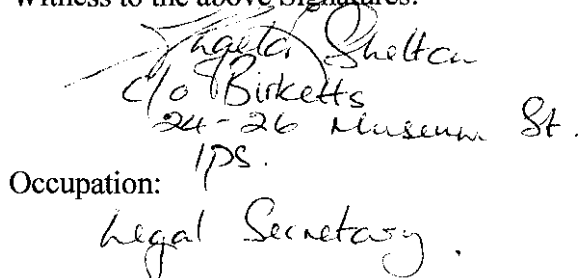 Witness to the above Signatures:
Shelton
c/o Birketts
24-26 Museum St.
IPS.
Occupation:
Legal Secretary.